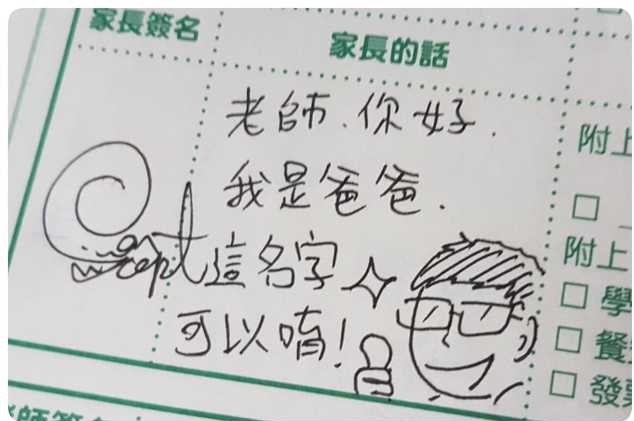 家長簽名
家長的話
老師.你好.
我是爸爸.
這名字
可以唷!
附上
□
附上
□ 學
□ 餐
□ 發票